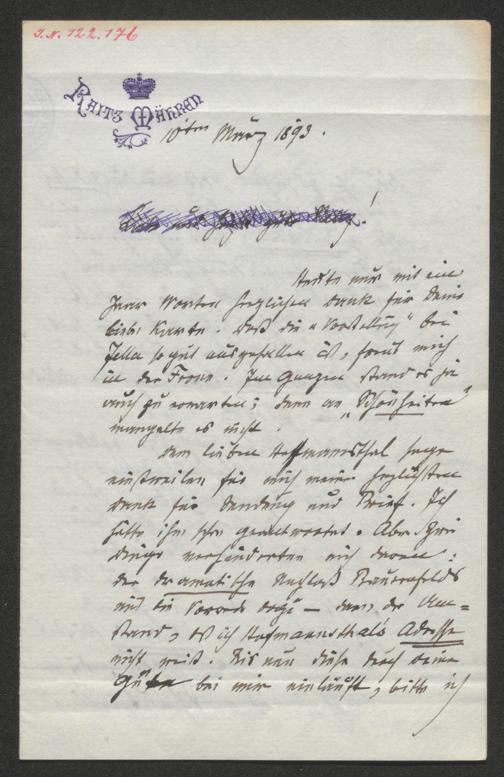 I.N. 122.176
RAITZ MÄHREN
10ten März 1893.
Heute nur mit ein
Paar Worten herzlichen Dank für Deine
liebe Karte. Daß die "Vorstellung" bei
Jella so gut ausgefallen ist, freut mich
in der Ferne. Im Ganzen stand es ja
auch zu erwarten; denn an "Schönheiten"
mangelte es nicht.
Dem lieben Hofmannsthal sage
einstweilen für mich meinen herzlichsten
Dank für Sendung und Brief. Ich
hätte ihm schon geantwortet. Aber zwei
Dinge verhinderten mich daran:
der dramatische Nachlaß Bauernfelds
und die Vorrede dazu — dann der Um=
stand, daß ich Hofmannsthal's Adresse
nicht weiß. Bis nun diese durch Deine
Güte bei mir einläuft, bitte ich